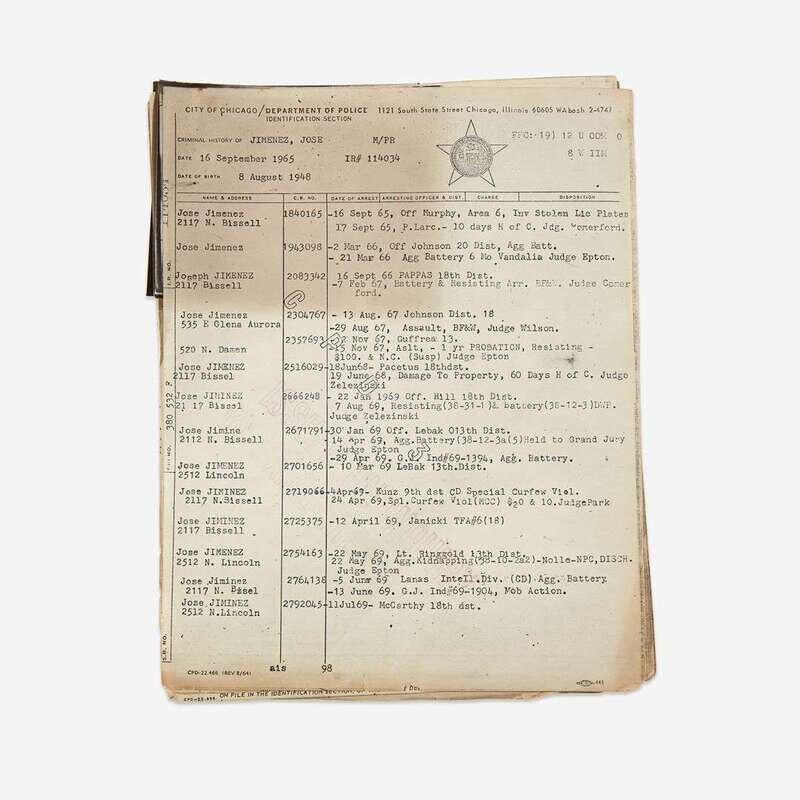 CITY OF CHICAGO/DEPARTMENT OF POLICE 1121 South State Street Chicago, Illinois 60605 WAbash 2-4747
IDENTIFICATION SECTION
CRIMINAL HISTORY OF JIMENEZ, JOSE M/PR
DATE 16 September 1965 IR# 114034
DATE OF BIRTH 8 August 1948
12 U 00
NAME & ADDRESS C.R. NO. DATE OF ARREST ARRESTING OFFICER & DIST. CHARGE DISPOSITION
Jose Jimenez 1840165 -16 Sept 65, Off Murphy, Area 6, Inv Stolen Lic Plates
2117 N. Bissell 17 Sept 65, P.Larc.- 10 days H of C. Jdg. Comerford.
Jose Jimenez 1943098 -2 Mar 66, Off Johnson 20 Dist, Agg Batt.
- 21 Mar 66 Agg Battery 6 Mo Vandalia Judge Epton.
Joseph JIMENEZ 2083342 16 Sept 66 PAPPAS 18th Dist.
2117 Bissell -7 Feb 67, Battery & Resisting Arr. BF&W. Judge Comer
ford.
Jose Jimenez 2304767 - 13 Aug. 67 Johnson Dist. 18
535 E Glena Aurora -29 Aug 67, Assault, BF&W, Judge Wilson.
2357693 Nov 67, Guffrea 13.
520 N. Damen Nov 67, Aslt, - 1 yr PROBATION, Resisting -
$100. & N.C. (Susp) Judge Epton
Jose JIMENEZ 2516029 -18Jun68- Pacetus 18thdst.
2117 Bissel 19 June 68, Damage To Property, 60 Days H of C. Judge
Zelezinski
Jose JIMINEZ 2666248 - 22 Jan 1969 Off. Hill 18th Dist.
2117 Bissel 7 Aug 69, Resisting(38-31-1)& battery(38-12-3)DWP.
Judge Zelezinski
Jose Jimine 2671791 -30 Jan 69 Off. Lebak 013th Dist.
2112 N. Bissell 14 Apr 69, Agg.Battery(38-12-3a(5)Held to Grand Jury
Judge Epton
-29 Apr 69. G.J. Ind#69-1394, Agg. Battery.
Jose JIMENEZ 2701656 - 10 Mar 69 LeBak 13th.Dist.
2512 Lincoln
Jose JIMINEZ 2719066 -4Apr69- Kunz 9th dst CD Special Curfew Viol.
2117 N.Bissell 24 Apr 69,Spl.Curfew Viol(MCC) $20 & 10.JudgePark
Jose JIMINEZ 2725375 -12 April 69, Janicki TFA#6(18)
2117 Bissell
Jose JIMENEZ 2754163 -22 May 69, Lt. Ringgold 13th Dist.
2512 N. Lincoln 22 May 69, Agg.Kidnapping(38-10-2a2)-Nolle-NPC,DISCH.
Judge Epton
Jose Jiminez 2764138 -5 June 69 Lanas Intell.Div. (CD) Agg. Battery
2117 N. Bisel -13 June 69. G.J. Ind#69-1904, Mob Action.
Jose JIMINEZ 2792045 -11Jul69- McCarthy 18th dst.
2512 N.Lincoln
ais 98
CPD-22.466 (REV 8/64)
ON FILE IN THE IDENTIFICATION SECTION,